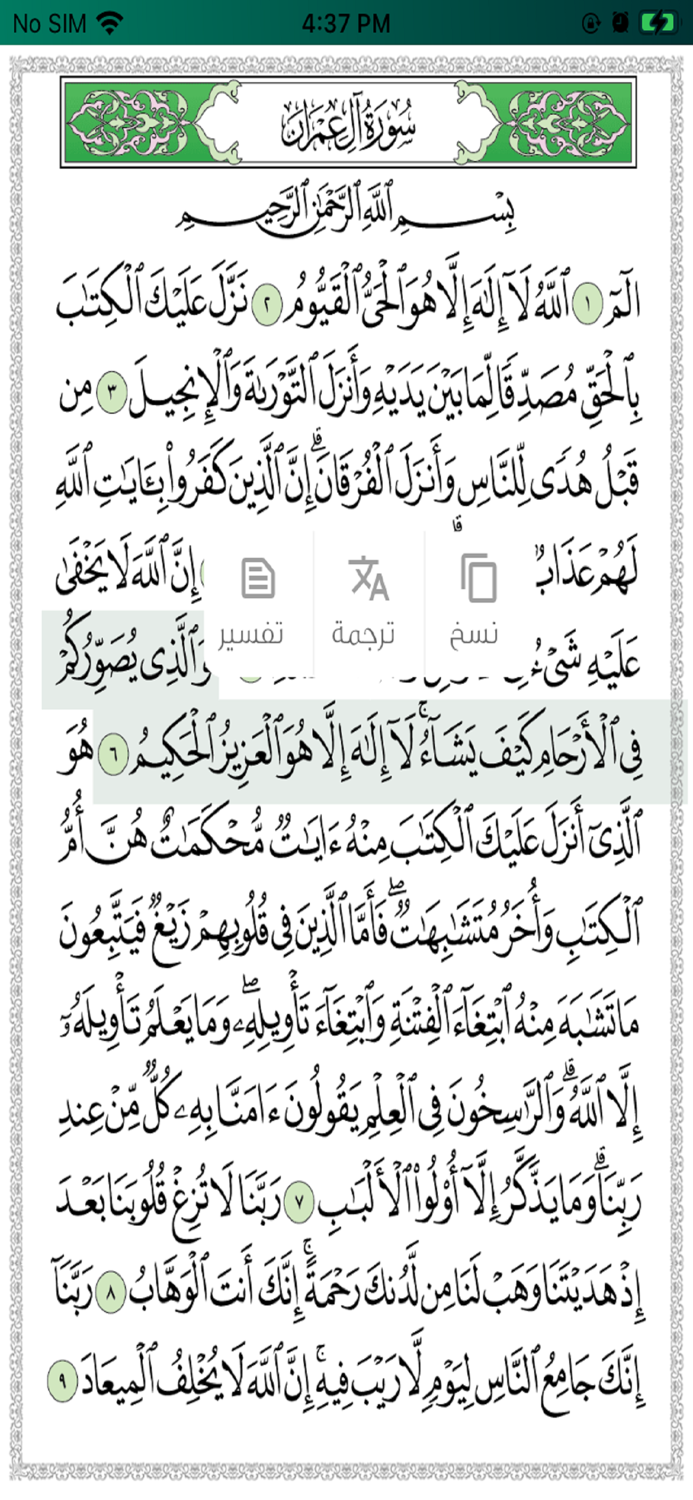 No SIM 4:37 PM
سُورَةُ آلِ عِمْرَانَ
بِسْمِ ٱللَّهِ ٱلرَّحْمَٰنِ ٱلرَّحِيمِ
الٓمٓ ١ ٱللَّهُ لَآ إِلَٰهَ إِلَّا هُوَ ٱلْحَىُّ ٱلْقَيُّومُ ٢ نَزَّلَ عَلَيْكَ ٱلْكِتَٰبَ
بِٱلْحَقِّ مُصَدِّقًا لِّمَا بَيْنَ يَدَيْهِ وَأَنزَلَ ٱلتَّوْرَىٰةَ وَٱلْإِنجِيلَ ٣ مِن
قَبْلُ هُدًى لِّلنَّاسِ وَأَنزَلَ ٱلْفُرْقَانَ ۗ إِنَّ ٱلَّذِينَ كَفَرُوا۟ بِـَٔايَٰتِ ٱللَّهِ
لَهُمْ عَذَابٌ إِنَّ ٱللَّهَ لَا يَخْفَىٰ
نسخ ترجمة تفسير
عَلَيْهِ شَىْءٌ هُوَ ٱلَّذِى يُصَوِّرُكُمْ
فِى ٱلْأَرْحَامِ كَيْفَ يَشَآءُ ۚ لَآ إِلَٰهَ إِلَّا هُوَ ٱلْعَزِيزُ ٱلْحَكِيمُ ٦ هُوَ
ٱلَّذِىٓ أَنزَلَ عَلَيْكَ ٱلْكِتَٰبَ مِنْهُ ءَايَٰتٌ مُّحْكَمَٰتٌ هُنَّ أُمُّ
ٱلْكِتَٰبِ وَأُخَرُ مُتَشَٰبِهَٰتٌ ۖ فَأَمَّا ٱلَّذِينَ فِى قُلُوبِهِمْ زَيْغٌ فَيَتَّبِعُونَ
مَا تَشَٰبَهَ مِنْهُ ٱبْتِغَآءَ ٱلْفِتْنَةِ وَٱبْتِغَآءَ تَأْوِيلِهِۦ ۖ وَمَا يَعْلَمُ تَأْوِيلَهُۥٓ
إِلَّا ٱللَّهُ ۗ وَٱلرَّٰسِخُونَ فِى ٱلْعِلْمِ يَقُولُونَ ءَامَنَّا بِهِۦ كُلٌّ مِّنْ عِندِ
رَبِّنَا ۗ وَمَا يَذَّكَّرُ إِلَّآ أُو۟لُوا۟ ٱلْأَلْبَٰبِ ٧ رَبَّنَا لَا تُزِغْ قُلُوبَنَا بَعْدَ
إِذْ هَدَيْتَنَا وَهَبْ لَنَا مِن لَّدُنكَ رَحْمَةً ۚ إِنَّكَ أَنتَ ٱلْوَهَّابُ ٨ رَبَّنَآ
إِنَّكَ جَامِعُ ٱلنَّاسِ لِيَوْمٍ لَّا رَيْبَ فِيهِ ۚ إِنَّ ٱللَّهَ لَا يُخْلِفُ ٱلْمِيعَادَ ٩